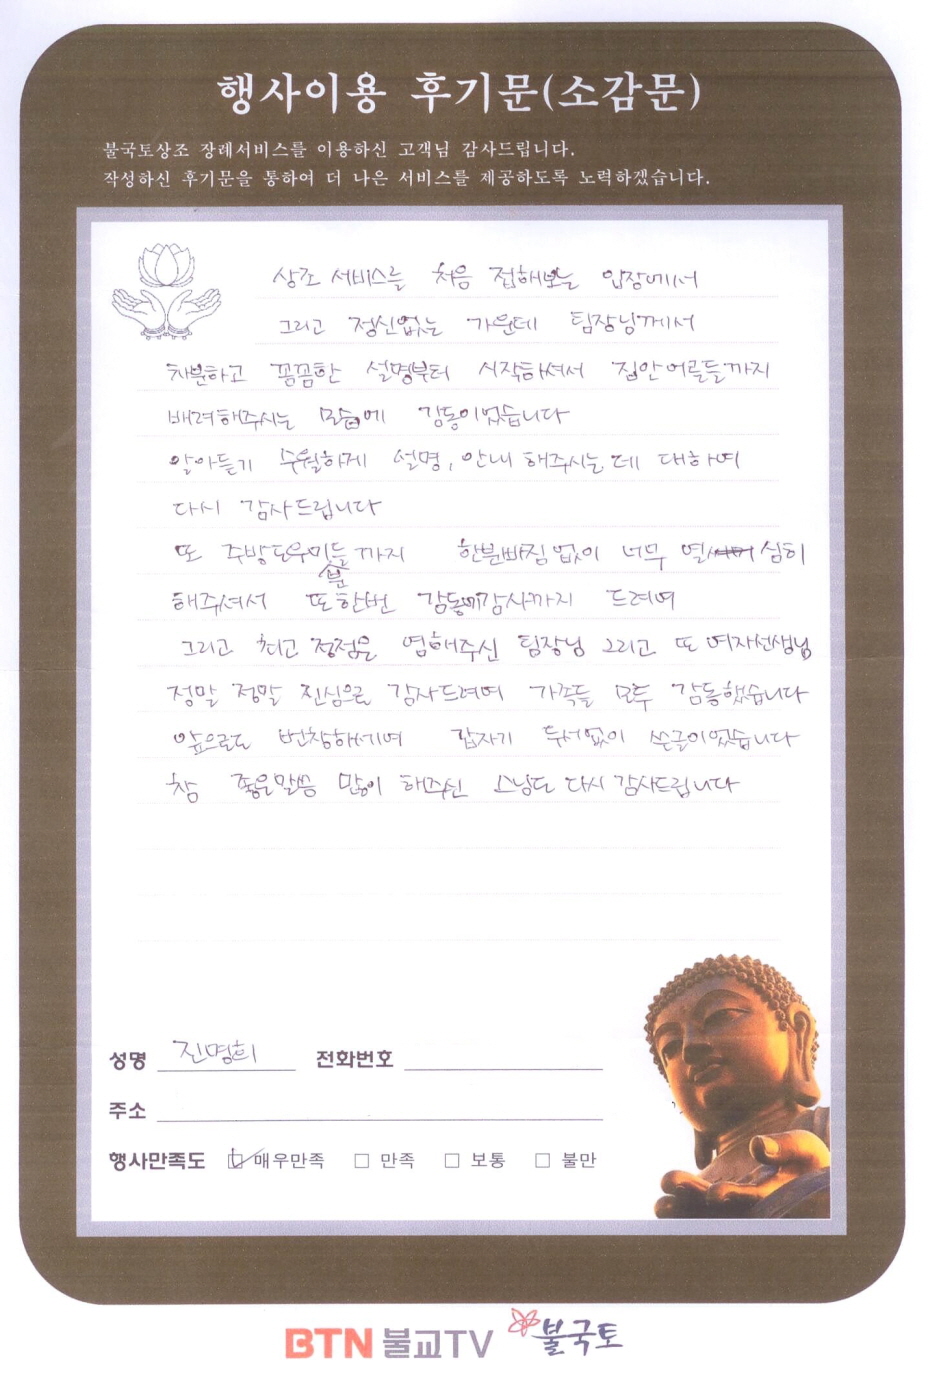 행사이용 후기문(소감문)
불국토상조 장례서비스를 이용하신 고객님 감사드립니다.
작성하신 후기문을 통하여 더 나은 서비스를 제공하도록 노력하겠습니다.
상조 서비스를 처음 접해보는 입장에서
그리고 정신없는 가운데 팀장님께서
차분하고 꼼꼼한 설명부터 시작하셔서 집안어른들까지
배려해주시는 모습에 감동이었습니다
알아듣기 수월하게 설명, 안내 해주시는데 대하여
다시 감사드립니다
또 주방도우미분들까지 한분빠짐없이 너무 열심히
해주셔서 또한번 감동에감사까지 드려며
그리고 최고 정점은 염해주신 팀장님 그리고 또 여자선생님
정말 정말 진심으로 감사드려며 가족들 모두 감동했습니다
앞으로도 번창하세기며 갑자기 두서없이 쓴글이었습니다
참 좋은말씀 많이 해주신 스님도 다시 감사드립니다
성명 진명희 전화번호
주소
행사만족도 매우만족 만족 보통 불만
BTN 불교TV 불국토